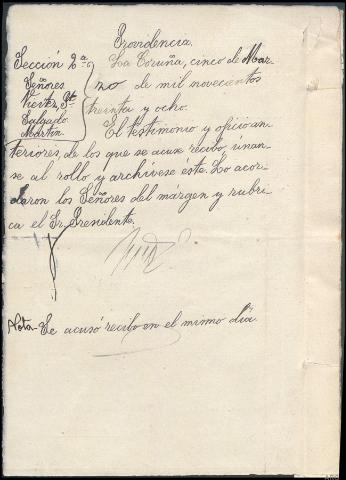 Providencia.
Sección 2ª
Señores
Vieitez, Pt
Salgado
Martín
La Coruña, cinco de Mar-
zo de mil novecientos
treinta y ocho.
El testimonio y oficio an-
teriores, de los que se acuse recibo, únan-
se al rollo y archívese éste. Lo acor-
daron los Señores del márgen y rubri-
ca el Sr. Presidente.
Nota- Se acusó recibo en el mismo día.